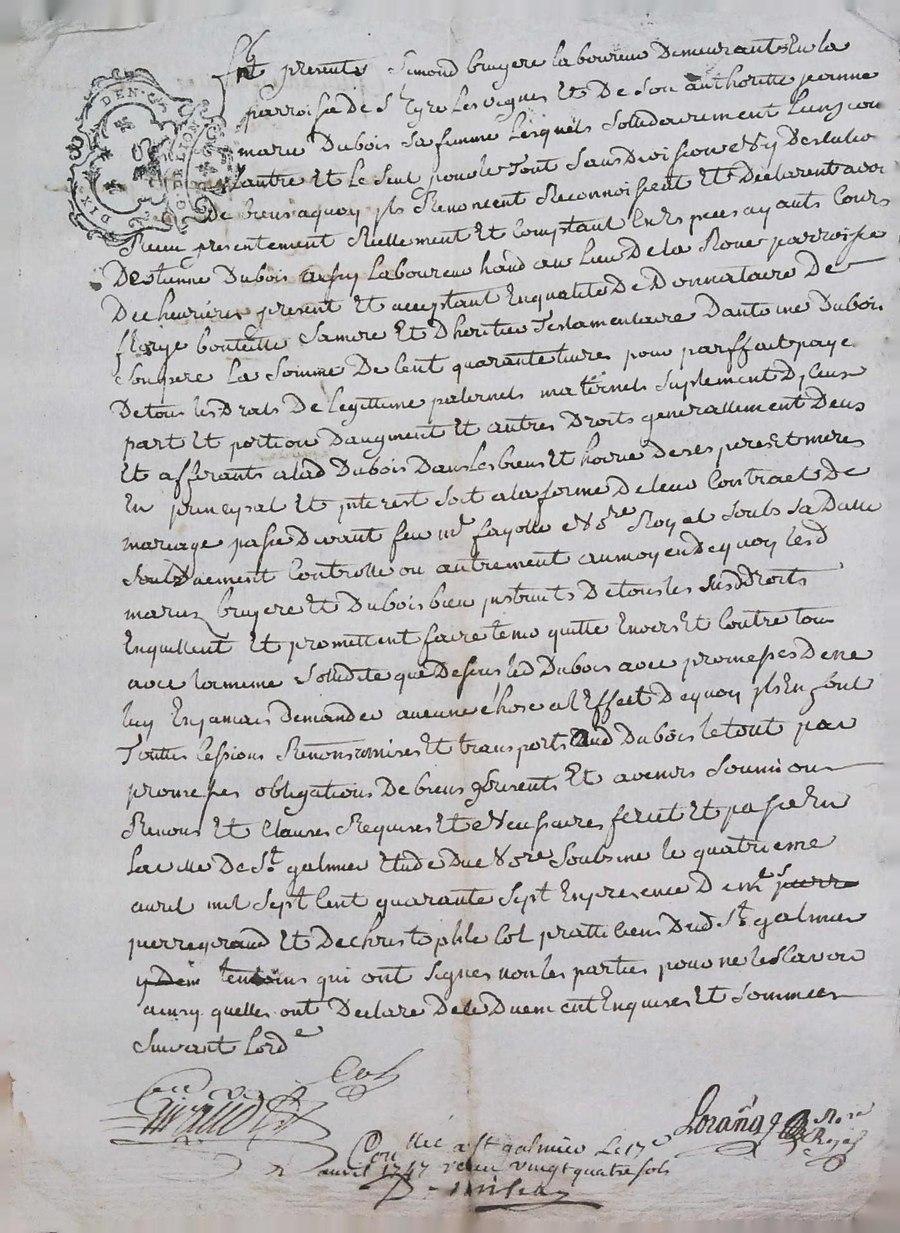 DIX DEN. G. DE LION
fut presents Simond bruyere laboureur Demeurants En la
parroisse de St Cyre Les vignes Et De Son authoritté jeanne
marie Dubois Sa femme Lesquels Sollidairement Lung pou
Lautre Et Le Seul pour le Tout Sans Division ny Destutio
De biens aquoy jls Renoncent Reconnoissent Et Declarent avoi
Receu presentement Réellement Et Comptant En Espéces ayants Cours
Destienne Dubois aussy Laboureur habd au Lieu De la Roue parroisse
De cheuriéres present Et acceptant En qualité De Donnataire De
florye bouteille Sa mere Et Dheritier Testamentaire Dantoine Dubois
Son pere La Somme De Cent quarante livres pour parffait paye
De tous les Droits De Legittime paternels maternels Suplement Dyceux
part Et portion Daugment Et autres Droits generallement Deus
Et afferants a lad Dubois Dans Les biens Et hoirie De ses peres Et meres
En principal Et jnterest Soit a la forme De leur Contract De
mariage passé Devant feu me fayolle Nore Royal Soubs Sa Datte
Duement Controllé ou autrement au moyen De quoy Lesd
mariez bruyere Et Dubois bien jnstruits De tous les Susd Droits
En quittent Et promettent faire tenir quitte Envers Et Contre tous
avec la meme Sollidité que Dessus led Dubois avec promesses De ne
luy En jamais Demander aucune chose a l Effect De quoy jls En font
Touttes Cessions Remises Et transports aud Dubois le tout par
promesses obligations De biens presents Et avenirs Soumions
Renons Et Clauses Requises Et Necessaires fercit Et passé En
La ville De St galmier Etude Du Nore Soubsne le quatrieme
avril mil Sept Cent quarante Sept En presence De me pierre
pierre giraud Et De christophle Col pratticiens Dud St galmier
temoins qui ont Signés non les parties pour ne le Scavoir
ainsy quelles ont Declaré De ce Duement Enquises Et Sommées
Suivant Lorde
Col
Giraud
Loranð Nore Royal
Conllé a St galmier Le 17e
avril 1747 receu vingt quatre sols